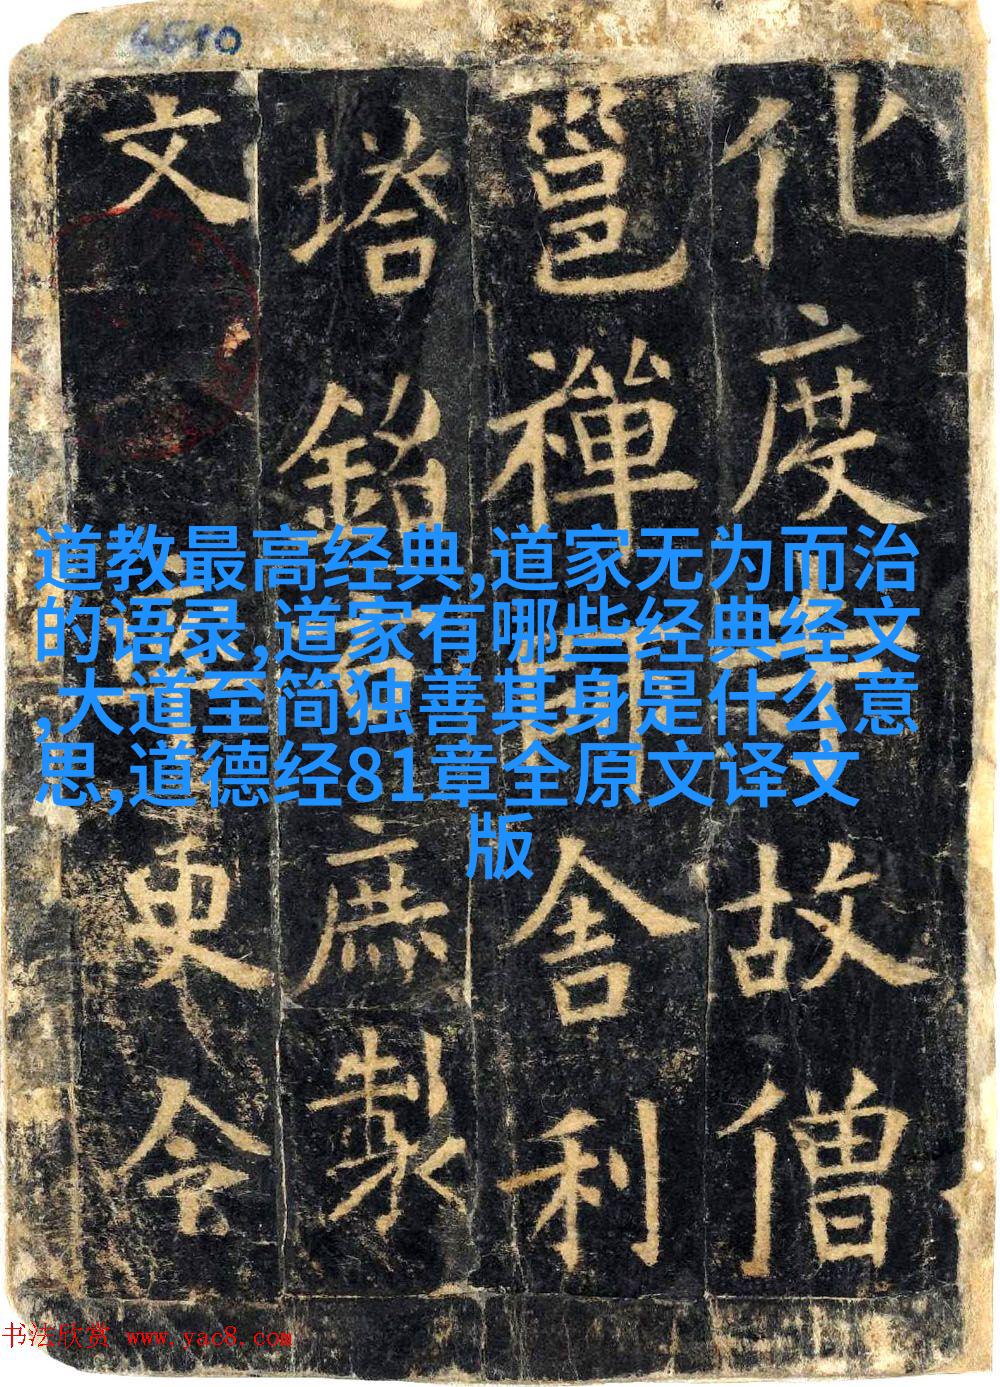 6510
化度寺故僧
邕禪師舍利
塔銘右庶製
文率更令
道教最高经典,道家无为而治
的语录,道家有哪些经典经文
,大道至简独善其身是什么意
思,道德经81章全原文译文
版
书法欣赏 www.yac8.com